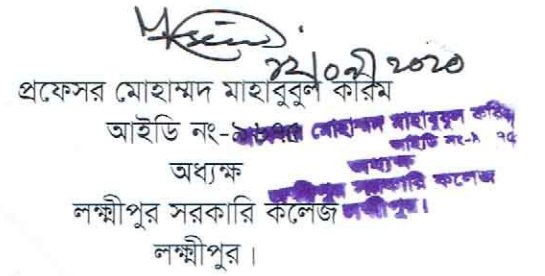 প্রফেসর মোহাম্মদ মাহাবুবুল করিম
আইডি নং-
অধ্যক্ষ
লক্ষ্মীপুর সরকারি কলেজ
লক্ষ্মীপুর।
মোহাম্মদ মাহাবুবুল করিম
আইডি নং-
অধ্যক্ষ
লক্ষ্মীপুর সরকারি কলেজ
লক্ষ্মীপুর।